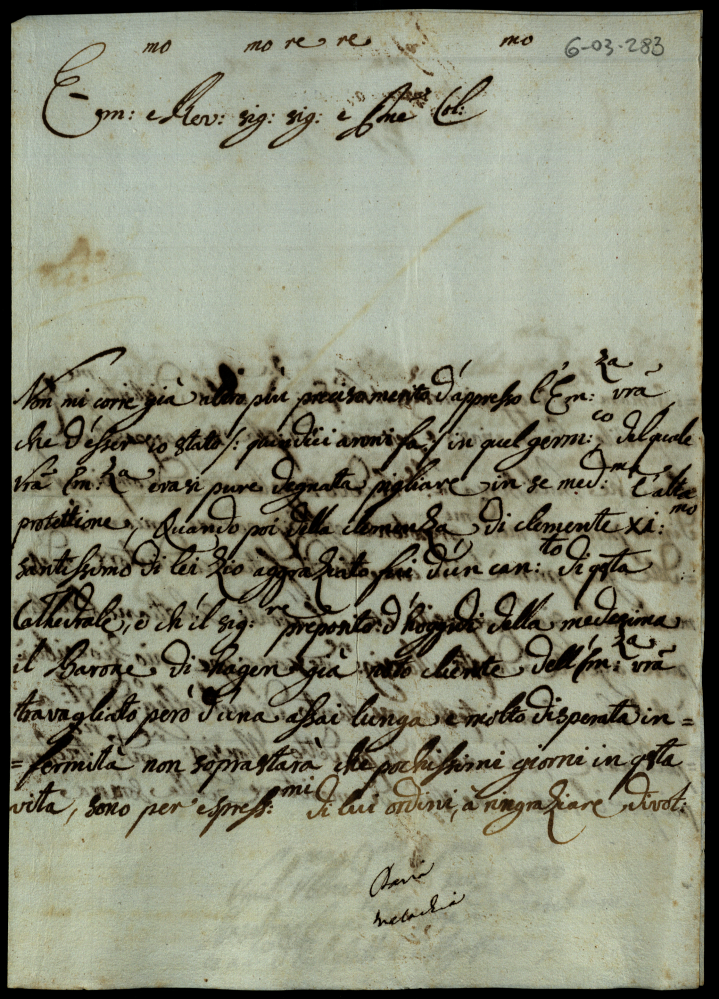 6-03-283
Em:mo e Rev:mo sig:re sig:re e Pne Col:mo
Non mi corre già altro più precisamente d'appresso l'Em:za vrã
che d'esser io stato /: quindici anni fa :/ in quel germ:co del quale
Vrã Em:za erasi pure degnata pigliare in se med:ma l'alta
protettione; Quando poi della clemenza di clemente XI:mo
santissimo di lei zio aggraziato fui d'un can:to di qsta
Cathedrale; e ch'il sig:re preposito d'hoggidi della medesima
il Barone di hagen già noto cliente dell'Em:za vrã
travagliato però d'una assai lunga e molto disperata in=
=fermità non soprastarà che pochissimi giorni in qsta
vita, sono per espress:mi di lui ordini, à ringraziare divot: